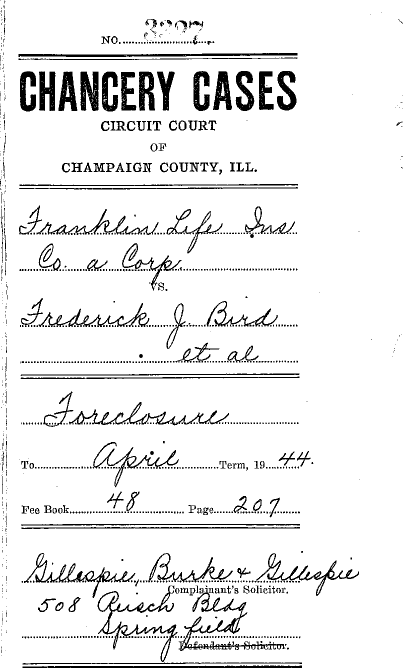 NO. 3297
CHANCERY CASES
CIRCUIT COURT
OF
CHAMPAIGN COUNTY, ILL.
Franklin Life Ins
Co. a Corp.
vs.
Frederick J. Bird
et al
Foreclosure
To April Term, 19 44.
Fee Book 48 Page 207
Gillespie, Burke & Gillespie
Complainant's Solicitor.
508 Reisch Bldg
Springfield
Defendant's Solicitor.